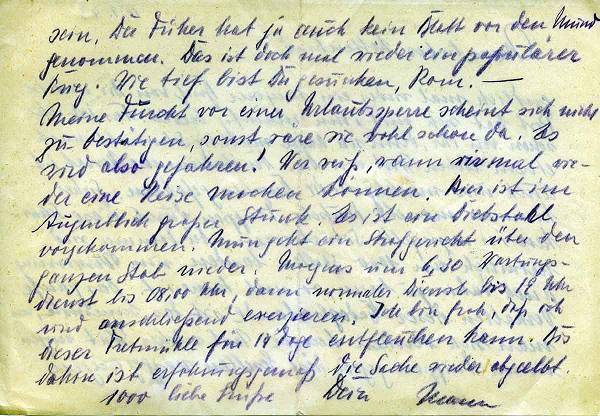 sein. Der Führer hat ja auch kein Blatt vor den Mund
genommen. Das ist doch mal wieder ein populärer
Krieg. Wie tief bist Du gesunken, Rom. —
Meine Furcht vor einer Urlaubssperre scheint sich nicht
zu bestätigen, sonst wäre sie wohl schon da. Es
wird also gefahren! Wer weiß, wann wir mal wie-
der eine Reise machen können. Hier ist im
Augenblick großer Stunk. Es ist ein Diebstahl
vorgekommen. Nun geht ein Strafgericht über den
ganzen Stab nieder. Morgens um 6,30 Wartungs-
dienst bis 08,00 Uhr, dann normaler Dienst bis 18 Uhr
und anschließend exerzieren. Ich bin froh, daß ich
dieser Tretmühle für 14 Tage entfleuchen kann. Bis
dahin ist erfahrungsgemäß die Sache wieder abgeebbt.
1000 liebe Grüße Dein